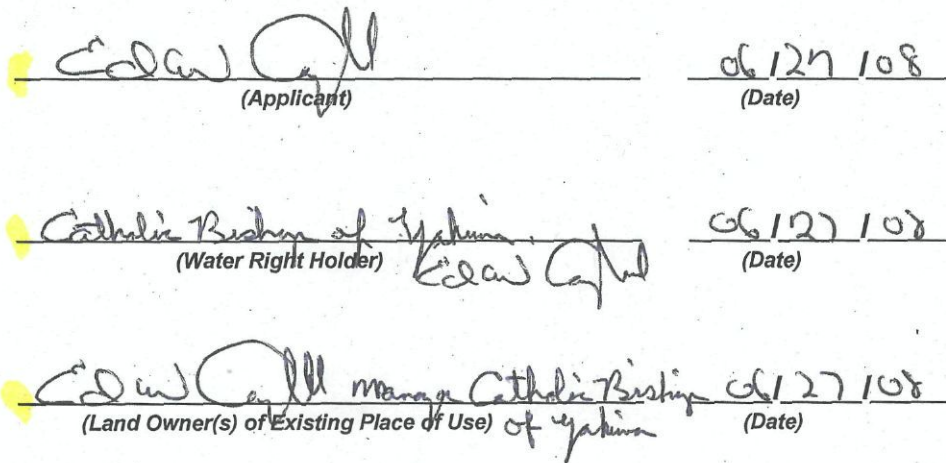 06/27/08
(Applicant) (Date)
Catholic Bishop of Yakima 06/27/08
(Water Right Holder) (Date)
Manager Catholic Bishop 06/27/08
(Land Owner(s) of Existing Place of Use) of Yakima (Date)